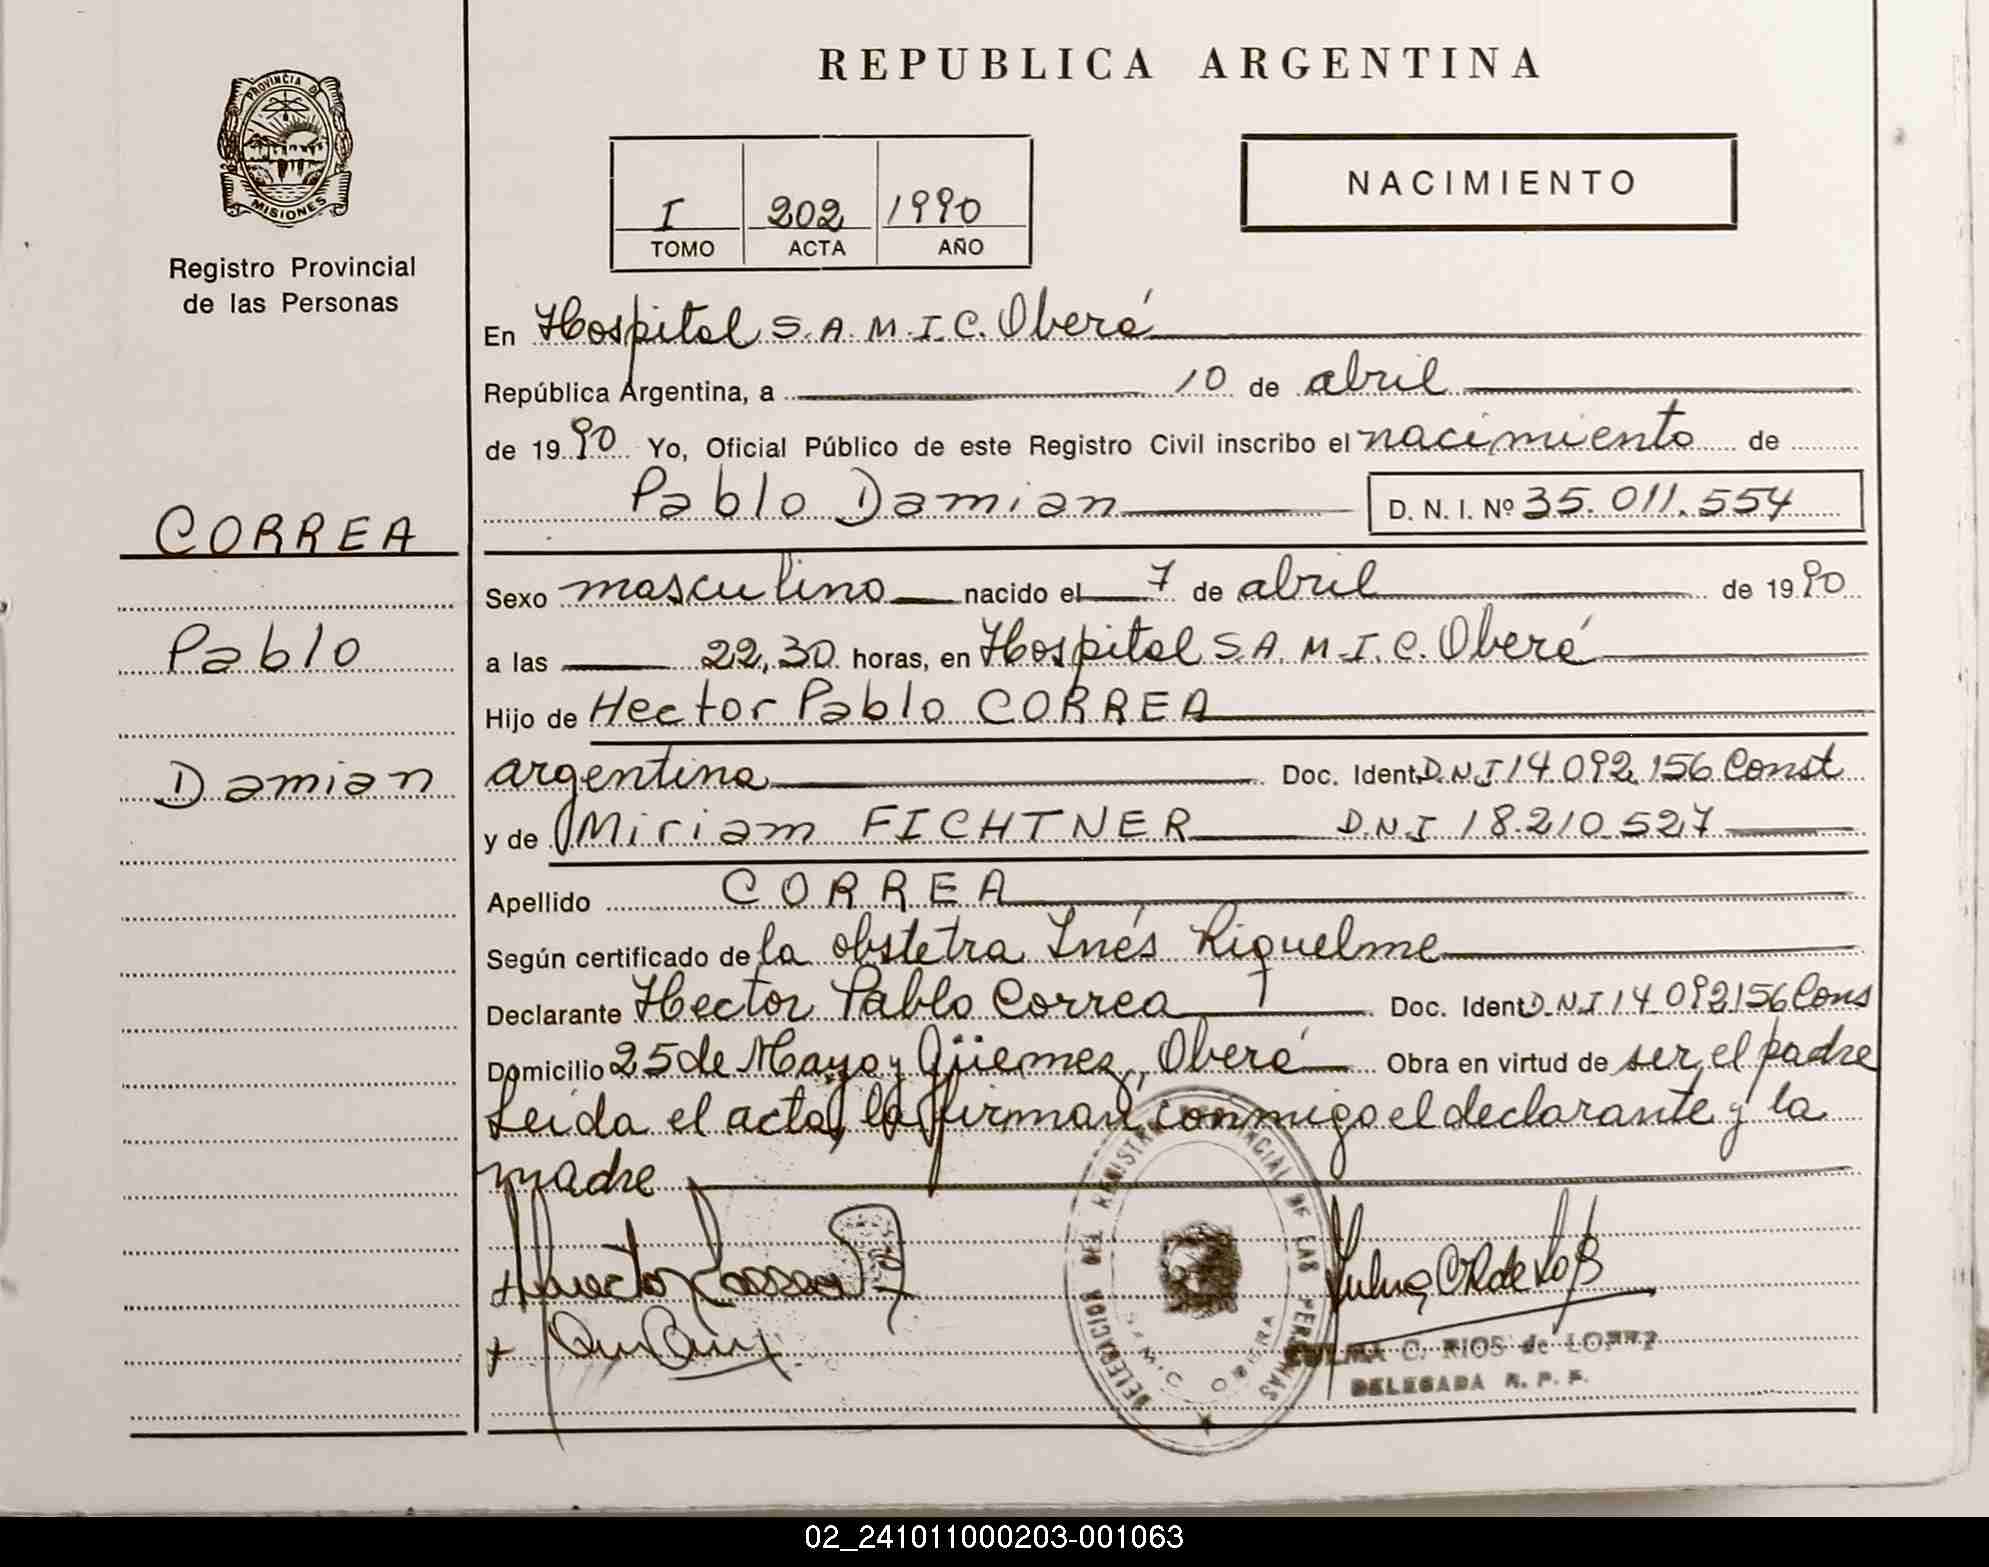 REPUBLICA ARGENTINA
PROVINCIA D
MISIONES
Registro Provincial
de las Personas
I 202 1990
TOMO ACTA AÑO
NACIMIENTO
En Hospital S.A.M.I.C. Oberá
República Argentina, a 10 de abril
de 1990 Yo, Oficial Público de este Registro Civil inscribo el nacimiento de
Pablo Damian D. N. I. Nº 35.011.554
CORREA
Pablo
Damian
Sexo masculino nacido el 7 de abril de 1990
a las 22,30 horas, en Hospital S.A.M.I.C. Oberá
Hijo de Hector Pablo CORREA
argentina Doc. Ident D.N.I 14.092.156 Const
y de Miriam FICHTNER D.N.I 18.210.527
Apellido CORREA
Según certificado de la obstetra Inés Riquelme
Declarante Hector Pablo Correa Doc. Ident D.N.I 14.092156 Cons
Domicilio 25 de Mayo y Güemez, Oberá Obra en virtud de ser el padre
Leída el acta, la firman conmigo el declarante y la
madre
DELEGACION DEL REGISTRO PROVINCIAL DE LAS PERSONAS
S.A.M.I.C. OBERA
C. RIOS de LOPEZ
DELEGADA R. P. P.
02_241011000203-001063